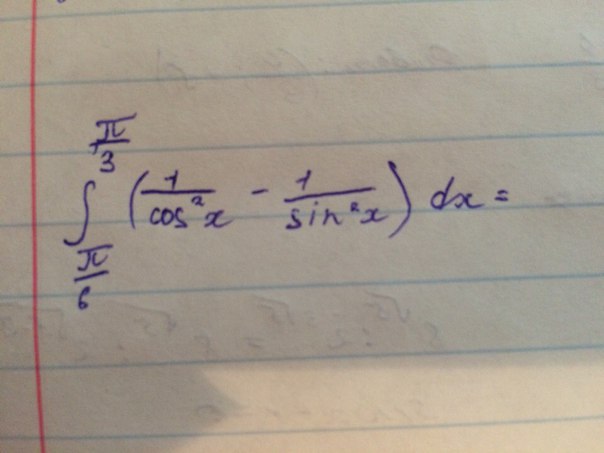 ∫_{π/6}^{π/3} (1/cos²x - 1/sin²x) dx =